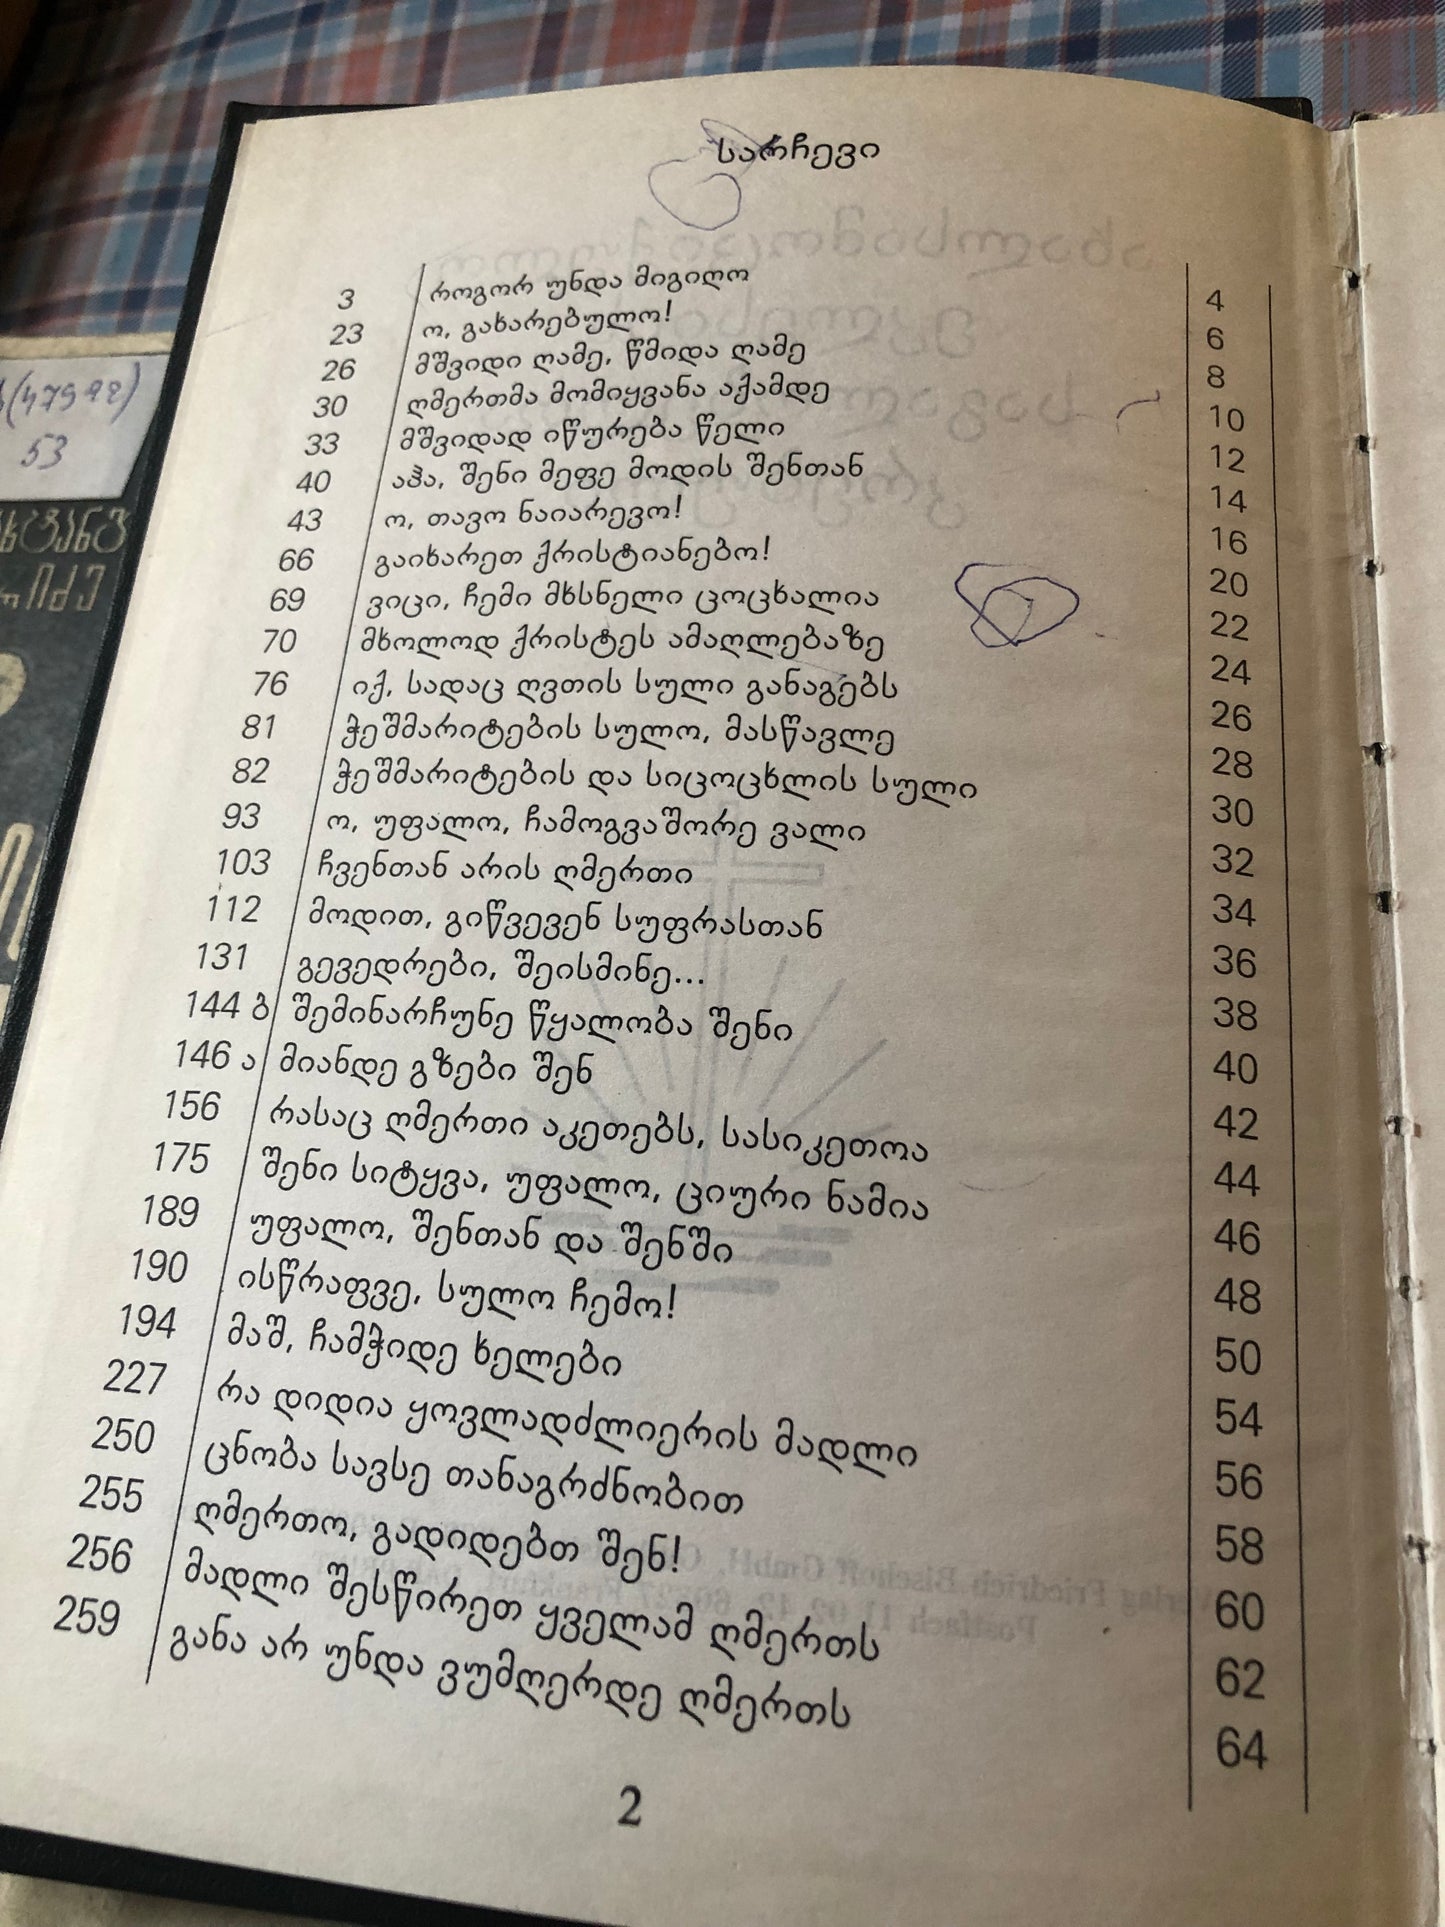 სარჩევი
3 როგორ უნდა მიგიღო 4
23 ო, გახარებულო! 6
26 მშვიდი ღამე, წმიდა ღამე 8
30 ღმერთმა მომიყვანა აქამდე 10
33 მშვიდად იწურება წელი 12
40 აჰა, შენი მეფე მოდის შენთან 14
43 ო, თავო ნაიარევო! 16
66 გაიხარეთ ქრისტიანებო! 20
69 ვიცი, ჩემი მხსნელი ცოცხალია 22
70 მხოლოდ ქრისტეს ამაღლებაზე 24
76 იქ, სადაც ღვთის სული განაგებს 26
81 ჭეშმარიტების სულო, მასწავლე 28
82 ჭეშმარიტების და სიცოცხლის სული 30
93 ო, უფალო, ჩამოგვაშორე ვალი 32
103 ჩვენთან არის ღმერთი 34
112 მოდით, გიწვევენ სუფრასთან 36
131 გევედრები, შეისმინე... 38
144 ბ შემინარჩუნე წყალობა შენი 40
146 ა მიანდე გზები შენ 42
156 რასაც ღმერთი აკეთებს, სასიკეთოა 44
175 შენი სიტყვა, უფალო, ციური ნამია 46
189 უფალო, შენთან და შენში 48
190 ისწრაფვე, სულო ჩემო! 50
194 მაშ, ჩამჭიდე ხელები 54
227 რა დიდია ყოვლადძლიერის მადლი 56
250 ცნობა სავსე თანაგრძნობით 58
255 ღმერთო, გადიდებთ შენ! 60
256 მადლი შესწირეთ ყველამ ღმერთს 62
259 განა არ უნდა ვუმღერდე ღმერთს 64
2
53